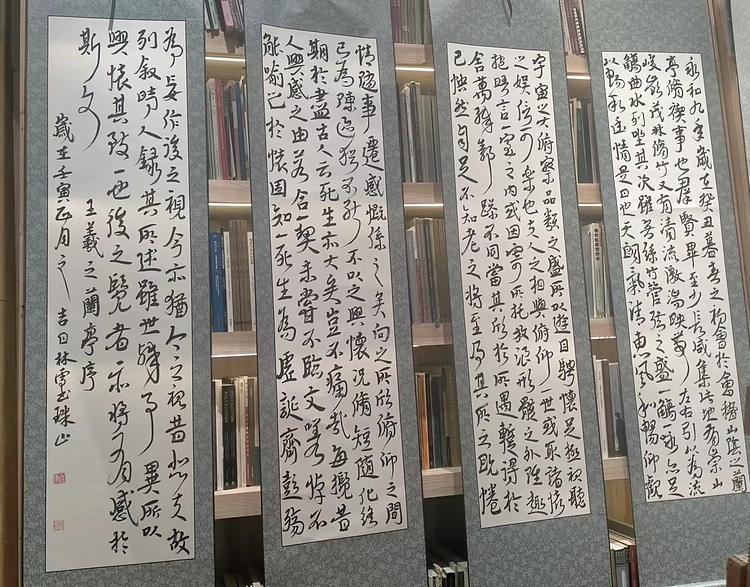 永和九年歲在癸丑暮春之初會於會稽山陰之蘭
亭脩禊事也群賢畢至少長咸集此地有崇山
峻嶺茂林脩竹又有清流激湍映帶左右引以為流
觴曲水列坐其次雖無絲竹管弦之盛一觴一詠亦足
以暢敘幽情是日也天朗氣清惠風和暢仰觀
宇宙之大俯察品類之盛所以遊目騁懷足以極視聽
之娛信可樂也夫人之相與俯仰一世或取諸懷
抱晤言一室之內或因寄所托放浪形骸之外雖趣
舍萬殊靜躁不同當其欣於所遇暫得於
己怏然自足不知老之將至及其所之既惓
情隨事遷感慨係之矣向之所欣俯仰之間
已為陳迹猶不能不以之興懷況脩短隨化終
期於盡古人云死生亦大矣豈不痛哉每攬昔
人興感之由若合一契未嘗不臨文嗟悼不
能喻之於懷固知一死生為虛誕齊彭殤
為妄作後之視今亦猶今之視昔悲夫故
列敘時人錄其所述雖世殊事異所以
興懷其致一也後之覽者亦將有感於
斯文
王羲之蘭亭序
歲在壬寅正月之吉日林雪書珠山